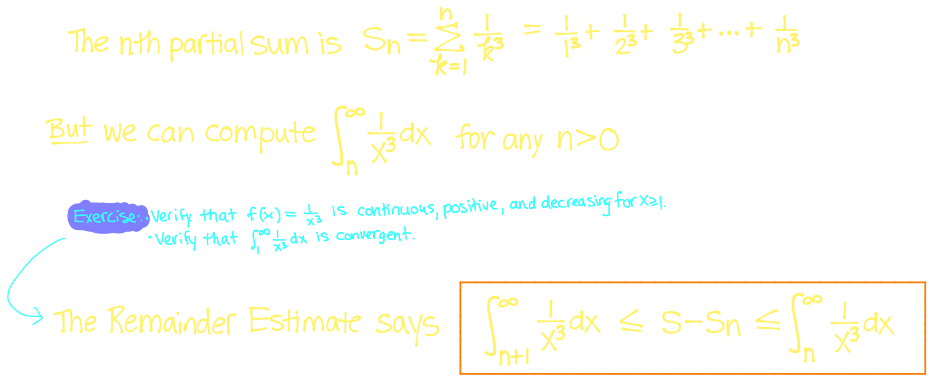 The nth partial sum is Sn = ∑_{k=1}^{n} 1/k³ = 1/1³ + 1/2³ + 1/3³ + ... + 1/n³
But we can compute ∫_n^∞ 1/x³ dx for any n>0
Exercise: · Verify that f(x) = 1/x³ is continuous, positive, and decreasing for x≥1.
· Verify that ∫_1^∞ 1/x³ dx is convergent.
The Remainder Estimate says ∫_{n+1}^∞ 1/x³ dx ≤ S-Sn ≤ ∫_n^∞ 1/x³ dx